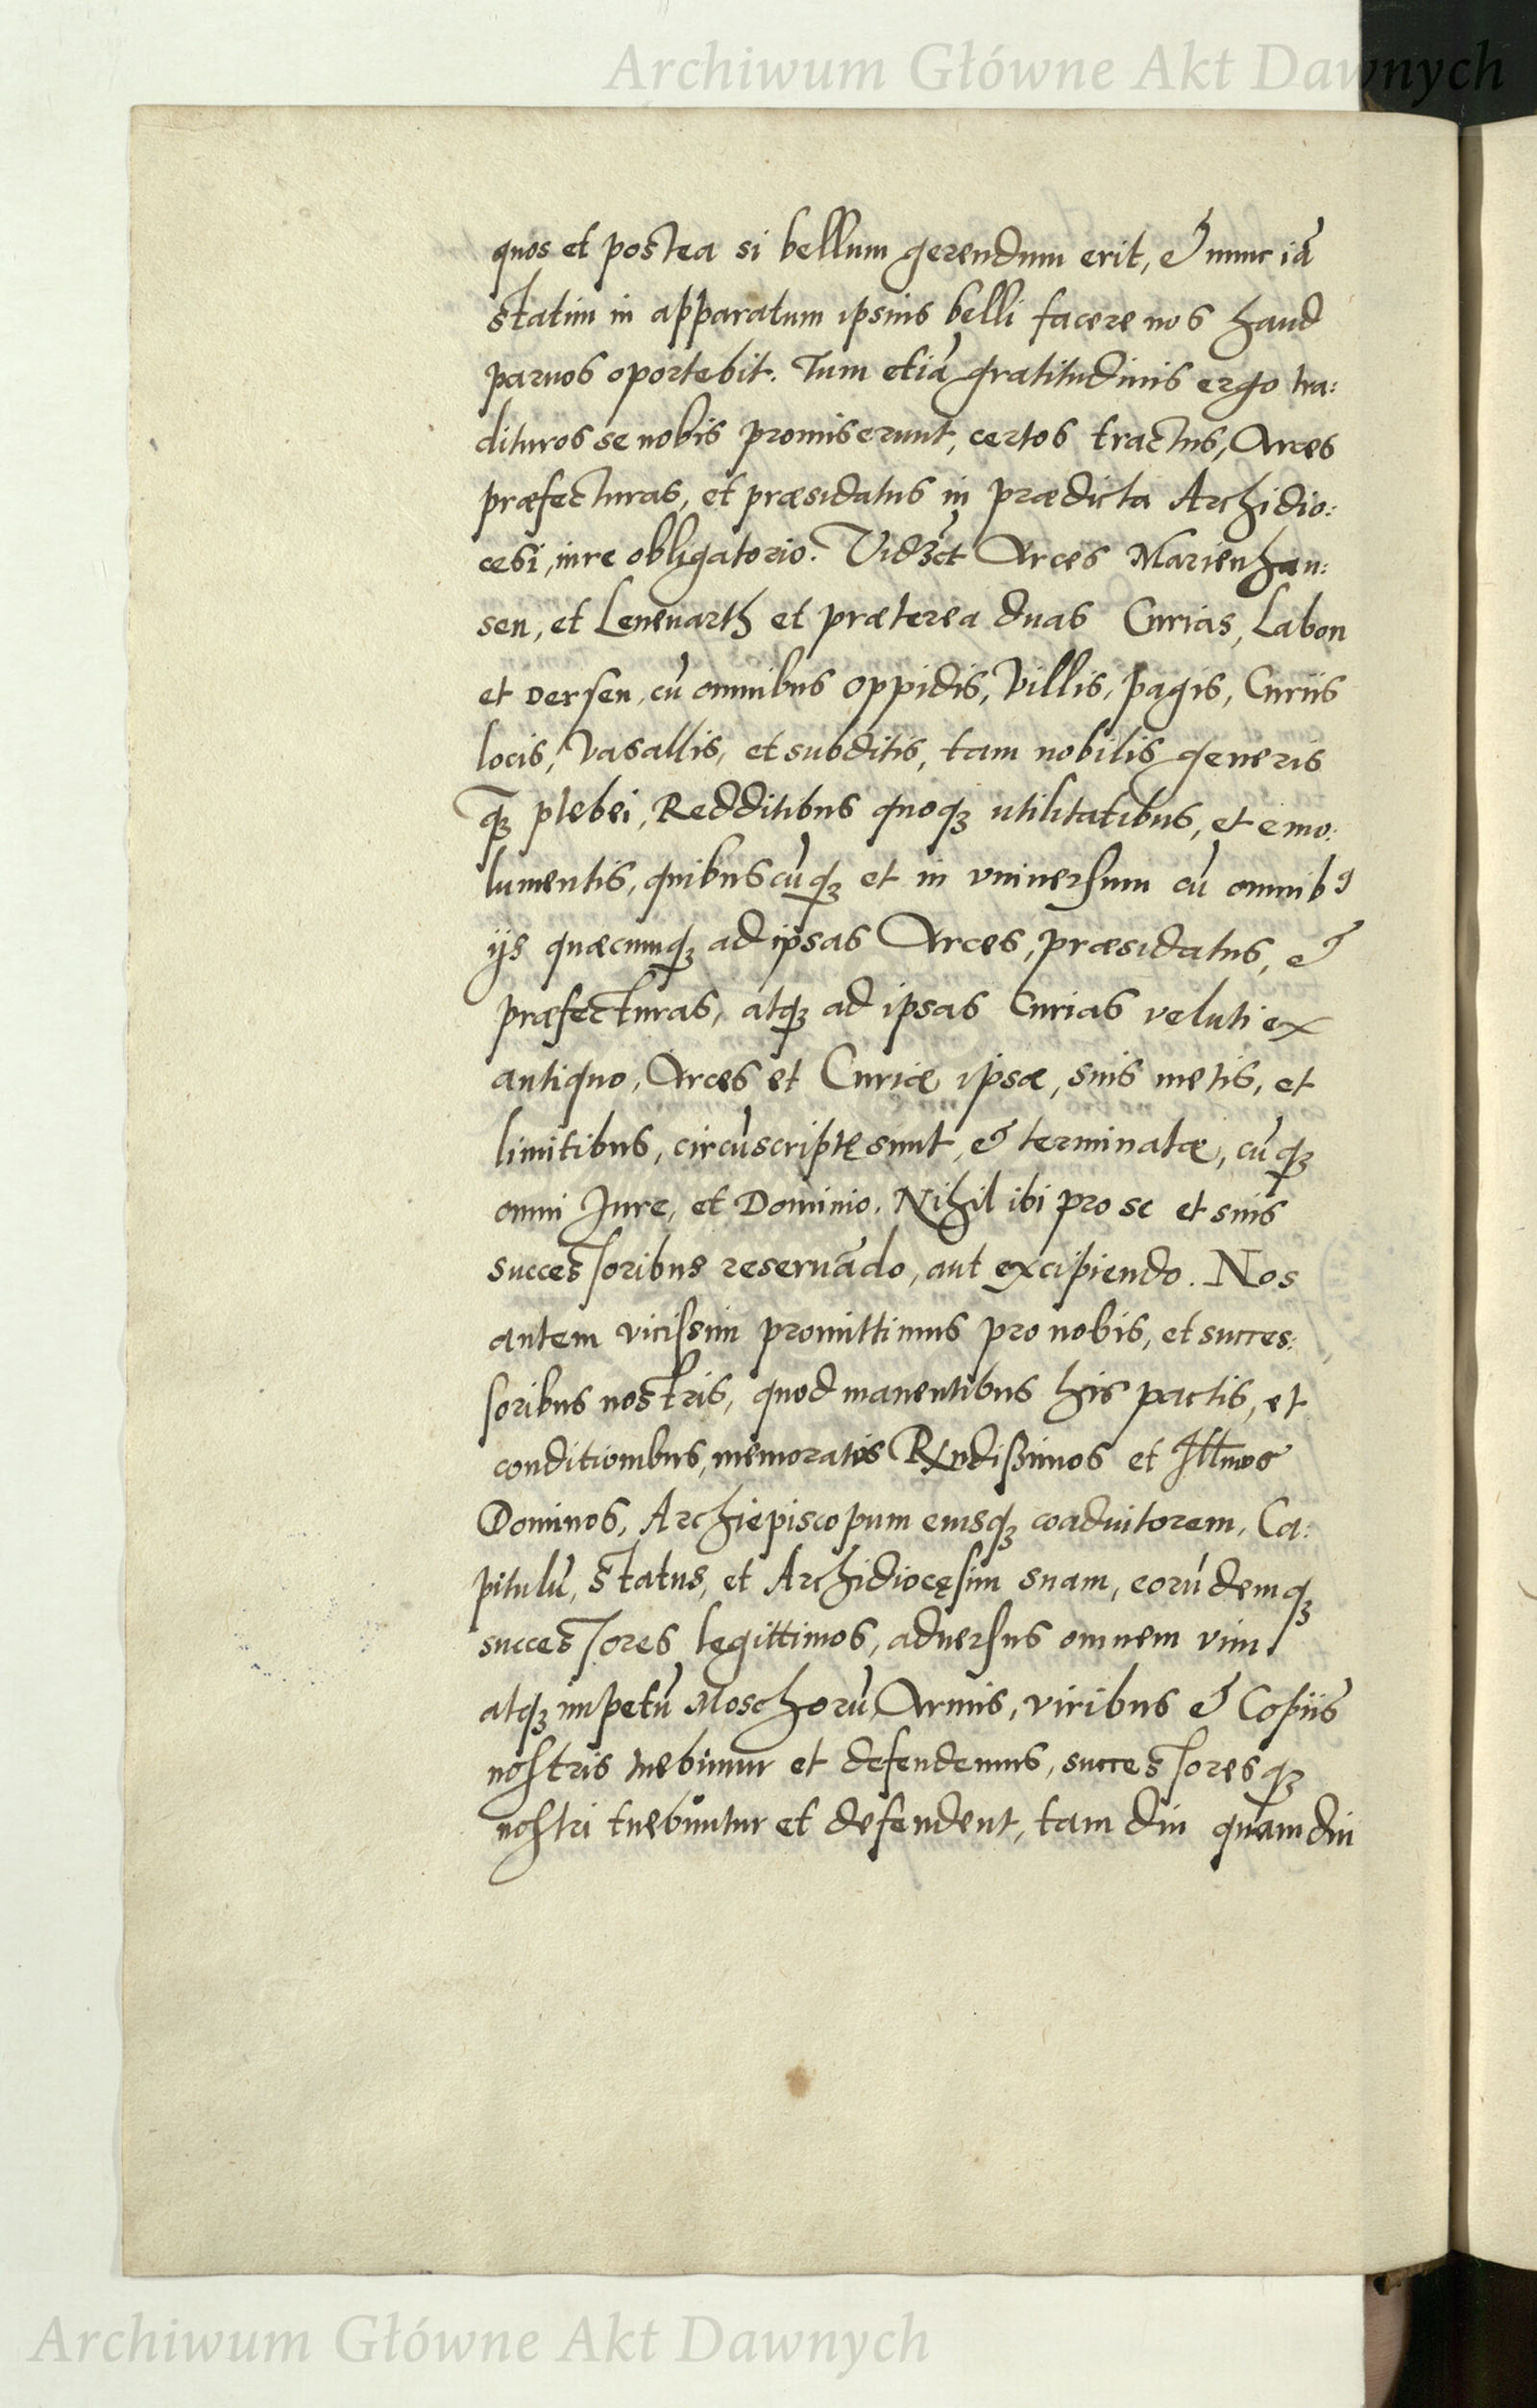 Archiwum Główne Akt Dawnych
quos et postea si bellum gerendum erit, & nunc iā
statim in apparatum ipsius belli facere nos haud
paruos oportebit. Tum etiā gratitudinis ergo tra:
dituros se nobis promiserunt, certos tractus, Arces
præfecturas, et præsidatus in prædicta Archidio:
cesi, iure obligatorio. Arces Marienhau:
sen, et Leneuarth et præterea duas Curias, Labon
et Dersen, cū omnibus oppidis, Villis, pagis, Curiis
locis, Vasallis, et subditis, tam nobilis generis
q̄ꝫ plebei, Redditibus quoqꝫ utilitatibus, et emo:
lumentis, quibuscūqꝫ et in vniuersum cū omnibꝰ
ijs quæcumqꝫ ad ipsas Arces, præsidatus, &
præfecturas, atqꝫ ad ipsas Curias veluti ex
antiquo, Arces et Curiæ ipsæ, suis metis, et
limitibus, circūscriptę sunt, & terminatæ, cūqꝫ
omni Jure, et Dominio. Nihil ibi pro se et suis
successoribus reseruādo, aut excipiendo. Nos
autem vicissim promittimus pro nobis, et succes:
soribus nostris, quod manentibus his pactis, et
conditionibus, memoratos Rx̄ndissimos et Illmos
Dominos, Archiepiscopum eiusqꝫ coadiutorem, Ca:
pitulū, status, et Archidiocęsim suam, eorūdemqꝫ
successores legittimos, aduersus omnem vim
atqꝫ impetū Moschorū Armis, viribus & Copiis
nostris tuebimur et defendemus, successoresqꝫ
nostri tuebuntur et defendent, tam diu quamdiu
Archiwum Główne Akt Dawnych